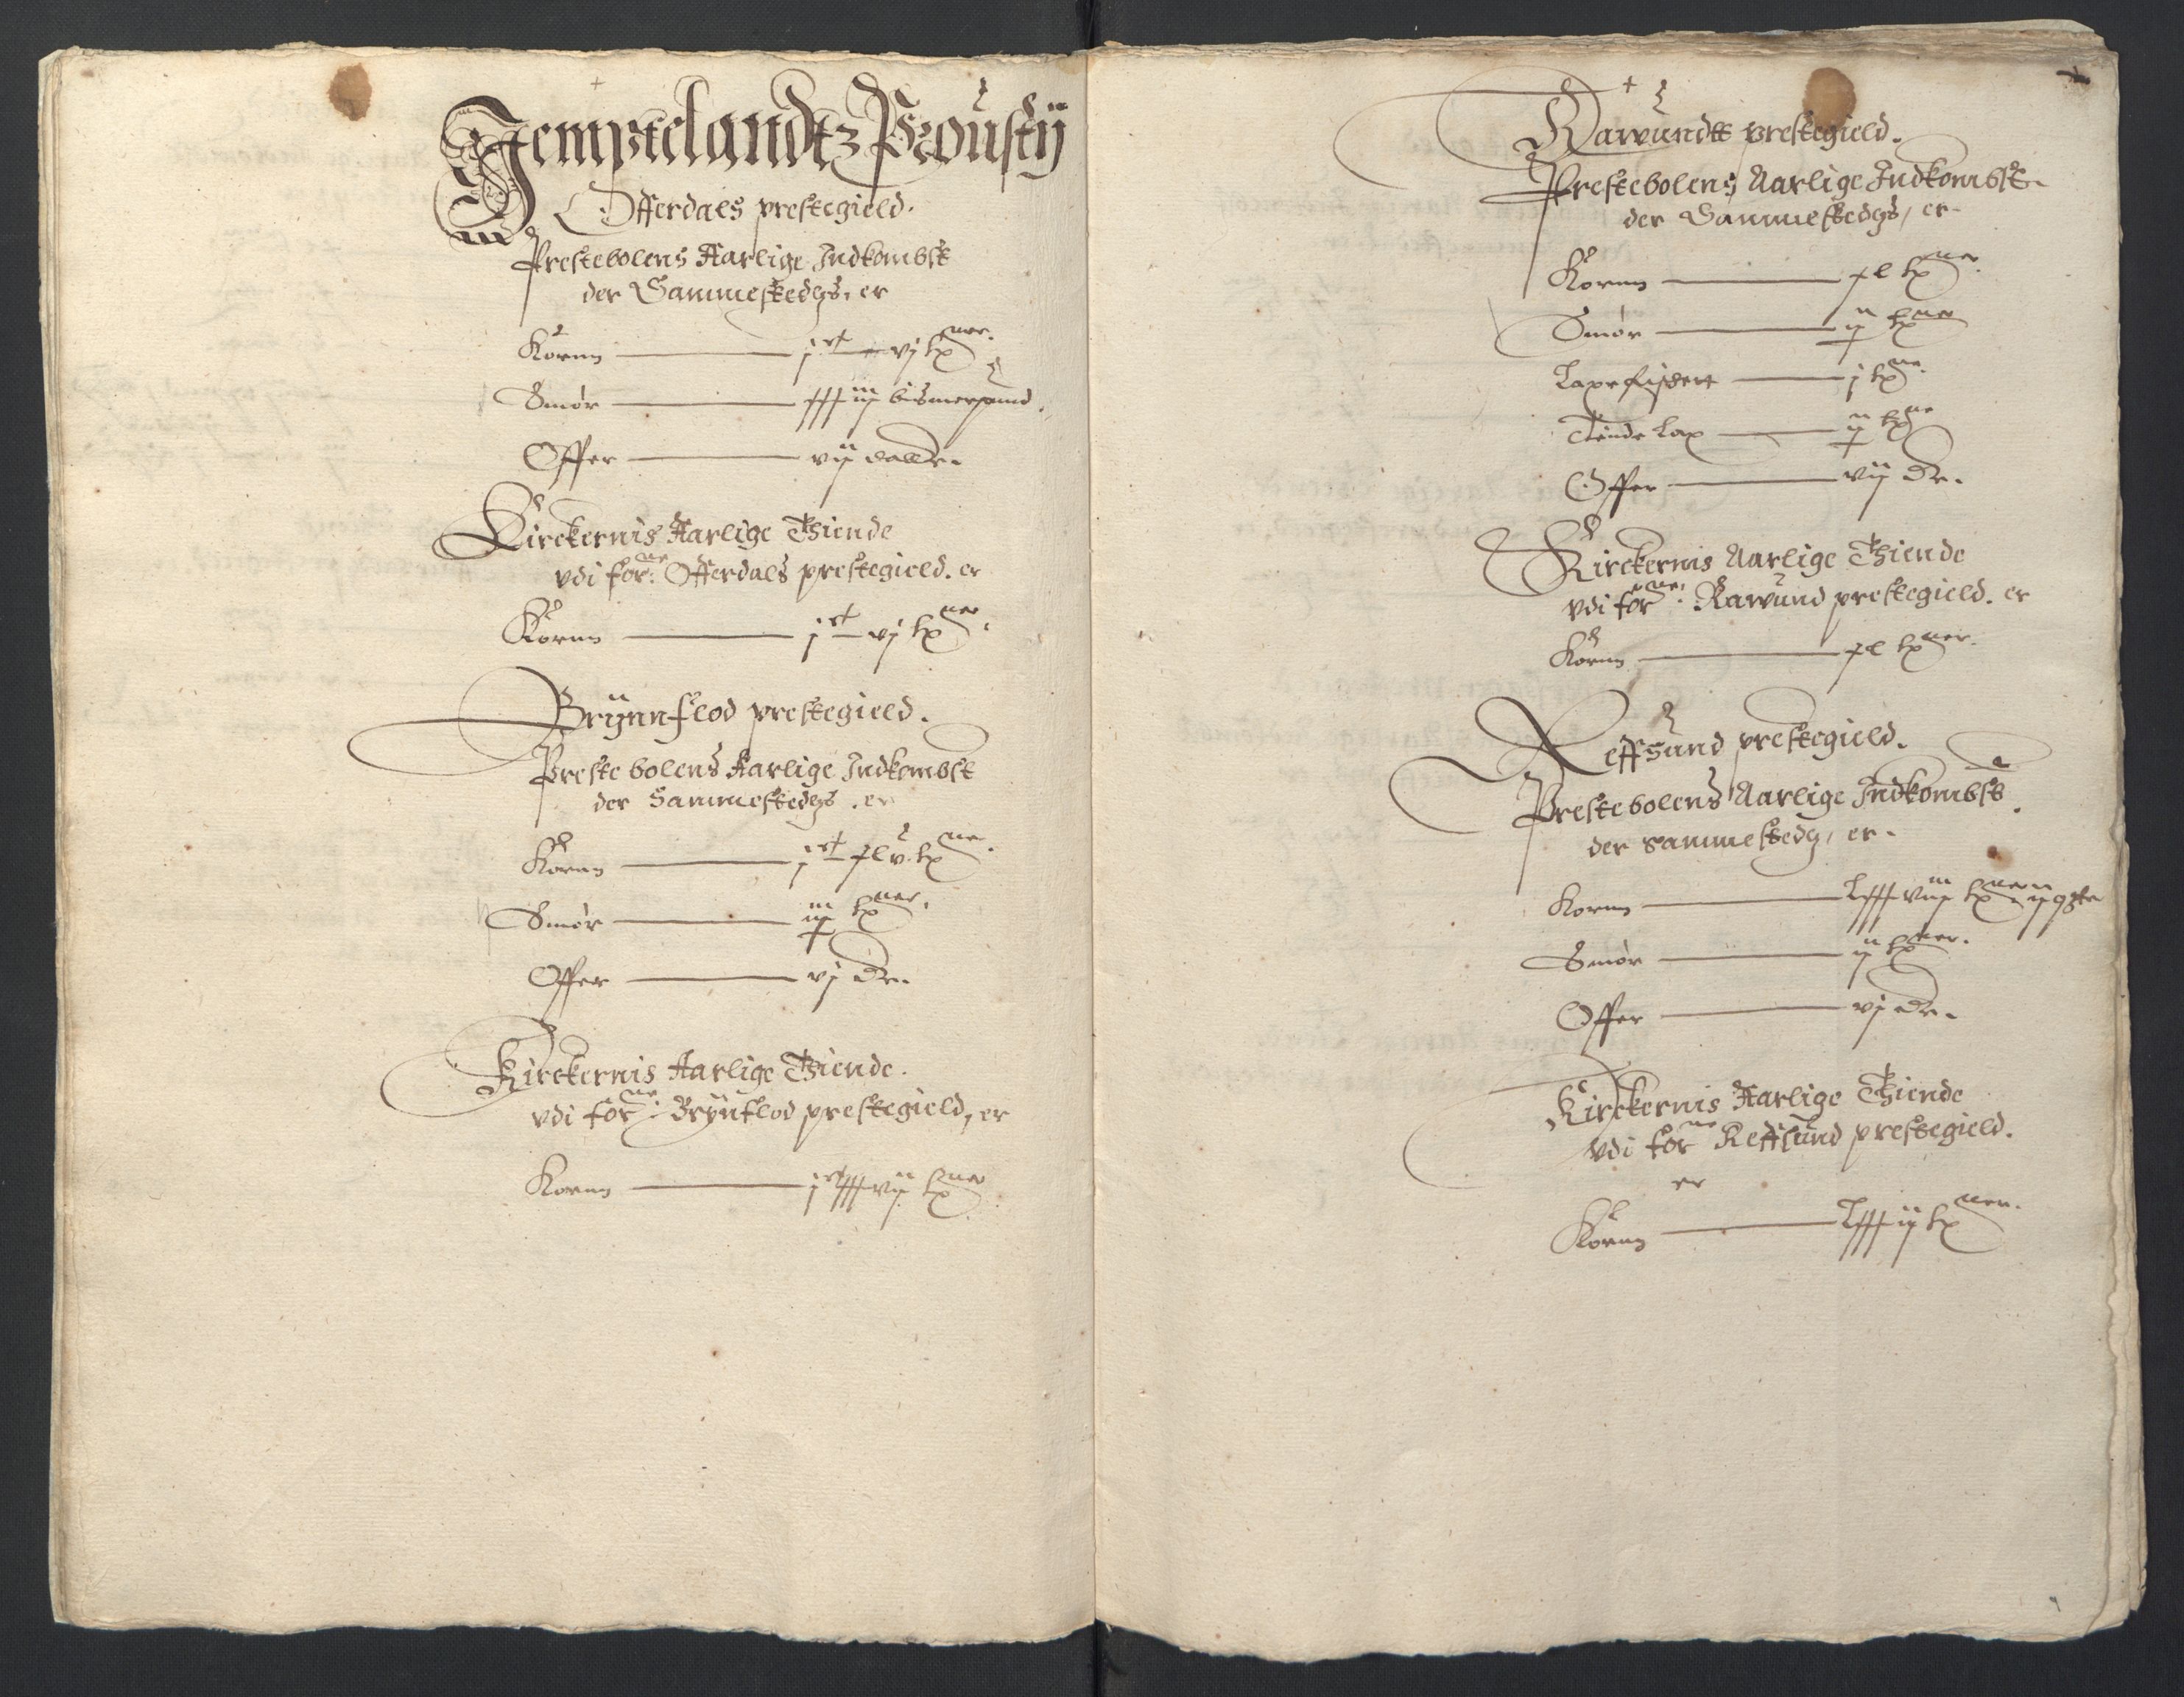 Jempttelandtz Prousty
Offerdals prestegield.
Prestebolens Aarlige Indkombst
der Sammestedtzs, er
Korn j c vj tp ner.
Smør xxx iiij bismerpund.
Offer vij daller.
Kirckernis Aarlige Thiende
vdi for: ne Offerdals prestegield. er
Korn j c vj tp ner.
Brÿnnflod prestegield.
Prestebolens Aarlige Indkombst
der Sammestedtzs. er
Korn j c xl v. tp ner.
Smør tp ner.
Offer vj Dr.
Kirckernis Aarlige Thiende.
vdi for ne: Brÿnflod prestegield, er
Korn j c xxx vij tp ner
Rawundtt prestegield.
Prestebolens Aarlige Indkombst.
der Sammestedtzs, er
Korn xl tp ner.
Smør tp ner
Laxefiskert j tp ne.
Tiende Lax tp ne
Offer vij Dr.
Kirckernis Aarlige Thiende
vdi for ne: Rawund prestegield. er
Korn xl tp ner.
Reffsund prestegield.
Prestebolens Aarlige Indkombst.
der sammestedtz, er.
Korn Lxxx viij tp ner
Smør ij tp ner.
Offer vj Dr.
Kirckernis Aarlige Thiende
vdi for ne Reffsund prestegield.
er
Korn Lxxx ij tp ner.